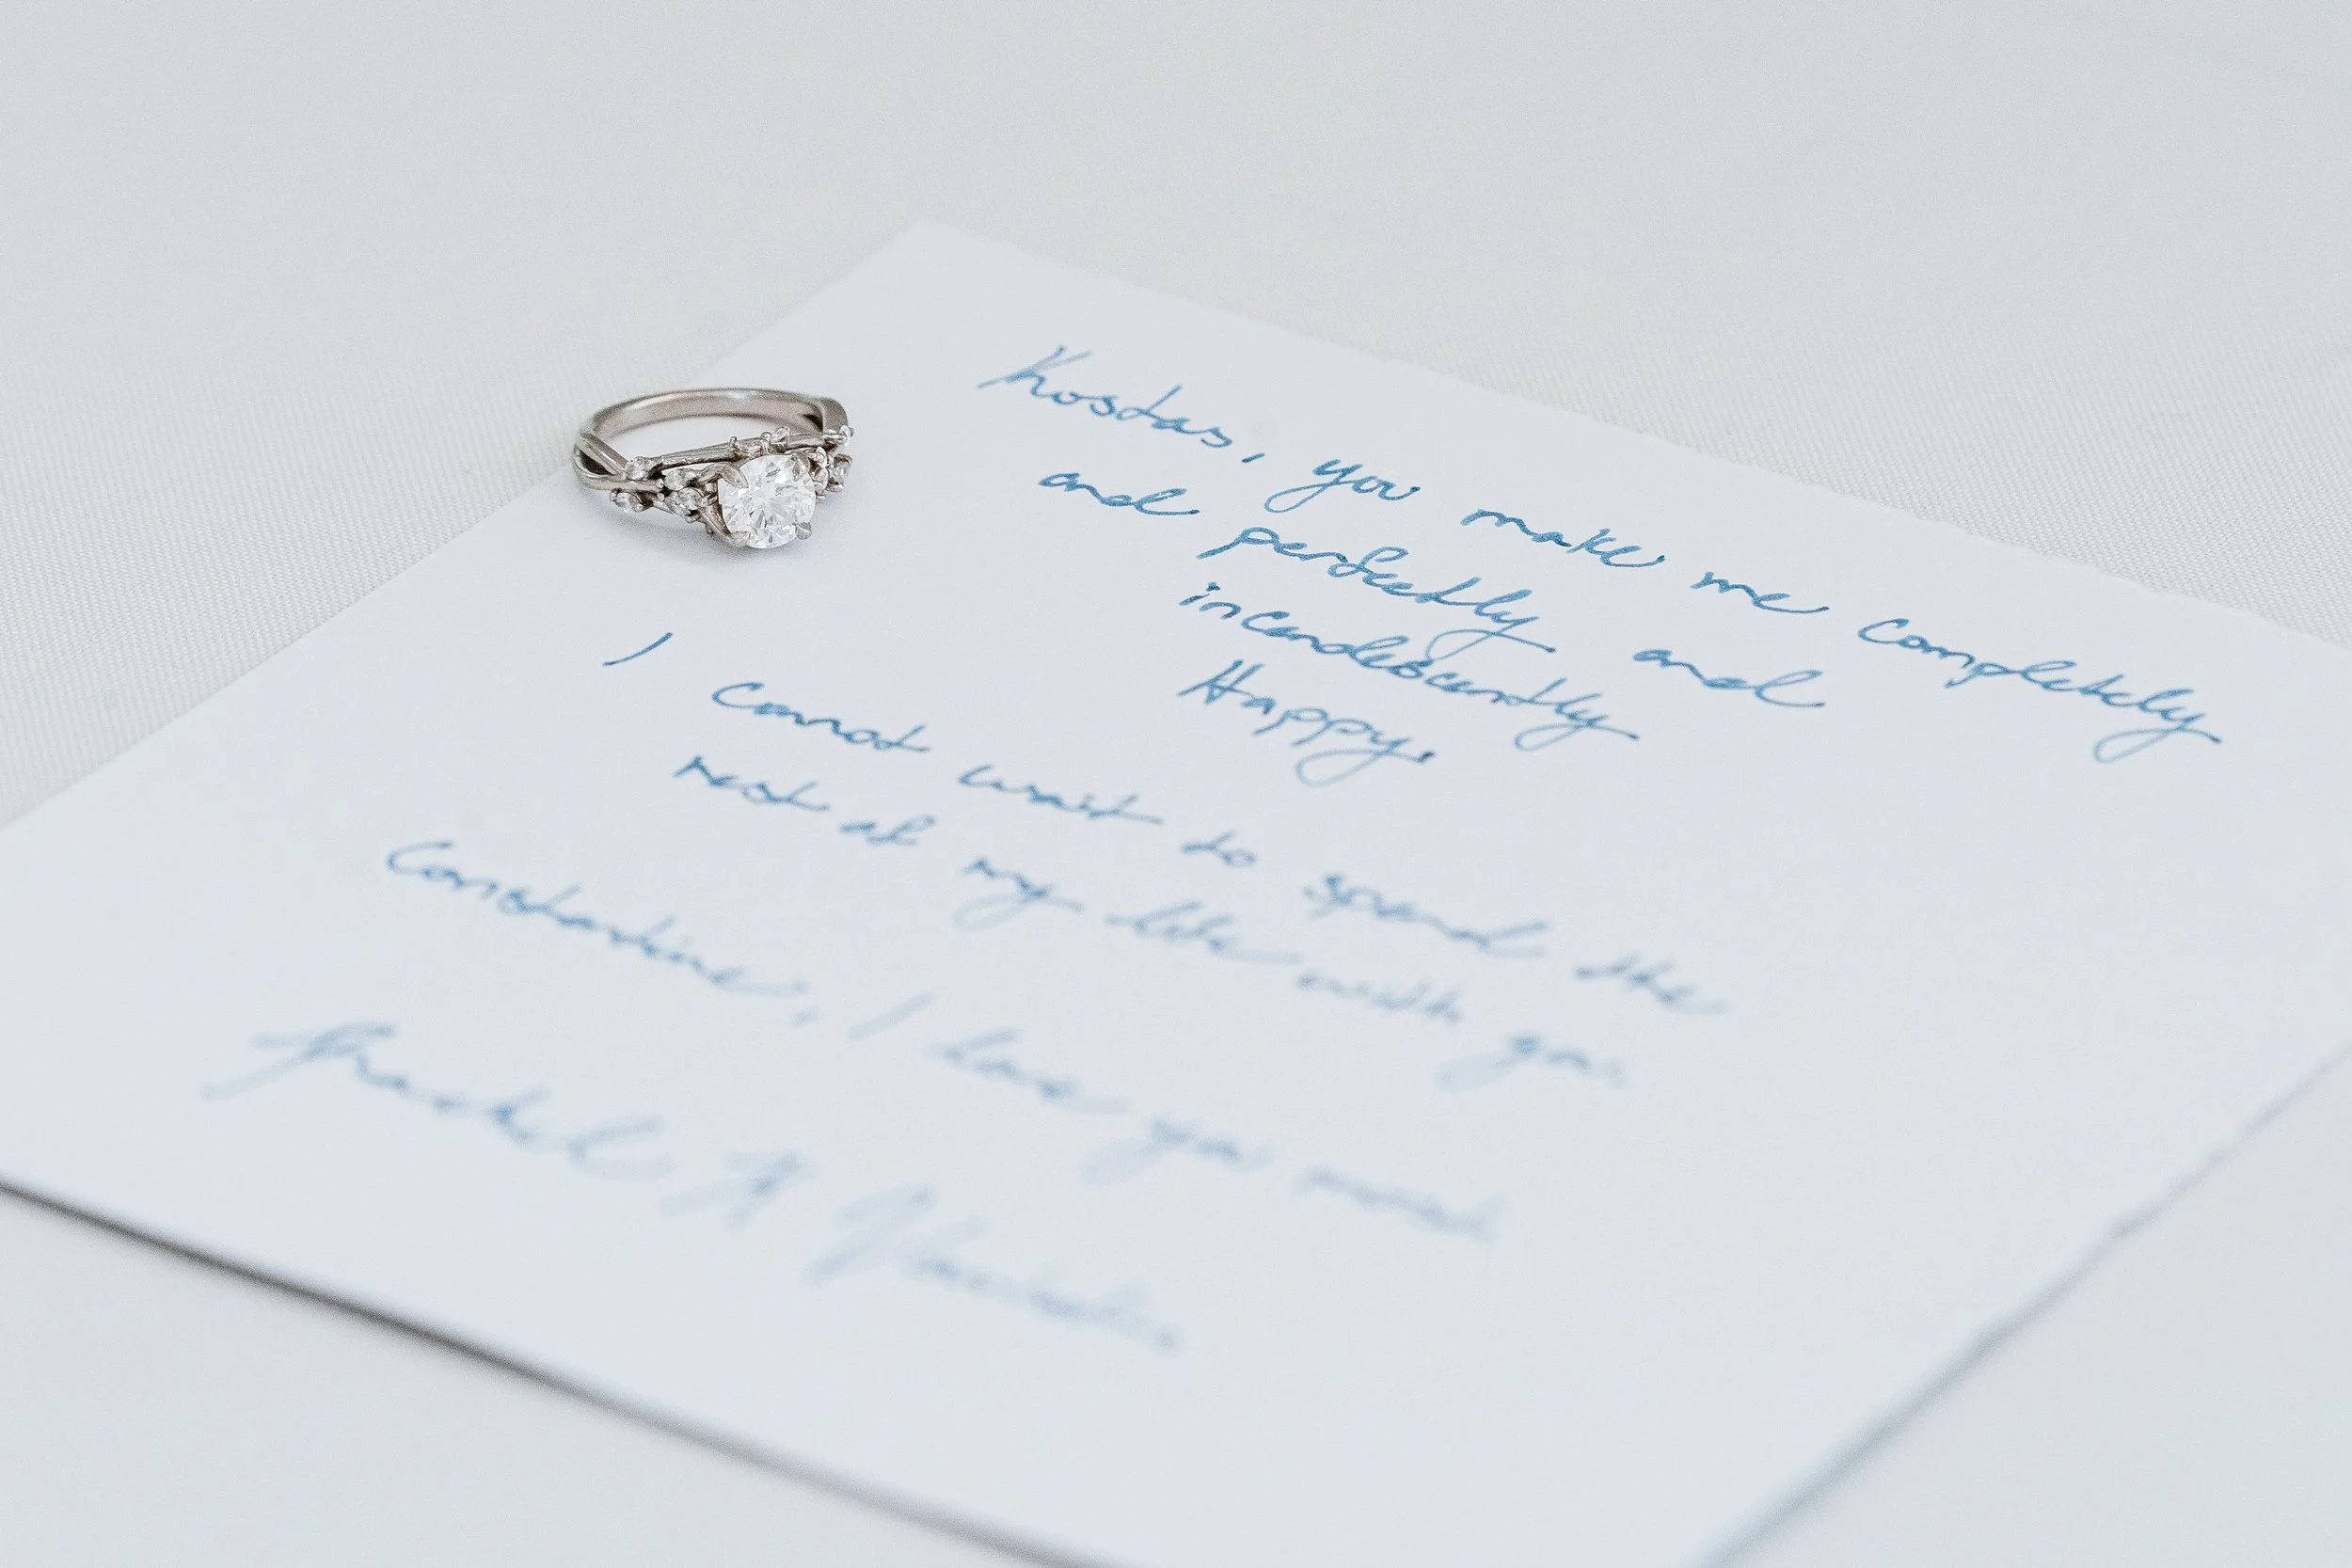 Kostas, you make me completely
and perfectly and
incandescently
Happy.
I cannot wait to spend the
rest of my life with you.
Constantine, I love you most